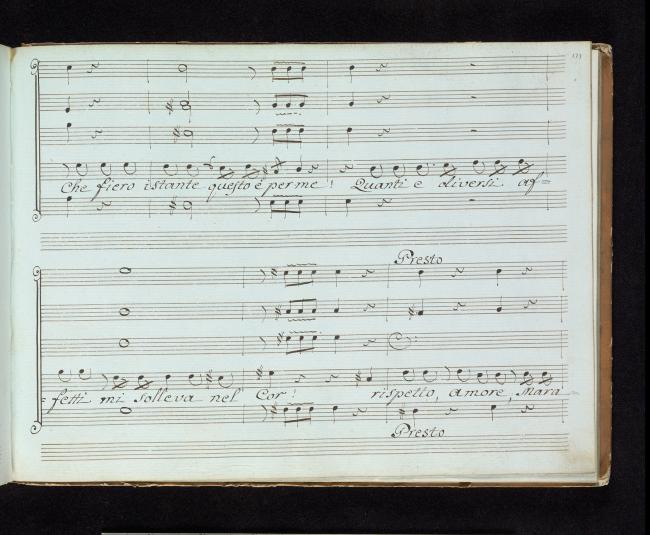 Che fiero istante questo è per me! Quanti e diversi af=
Presto
=fetti mi solleva nel Cor! rispetto, amore,
Presto